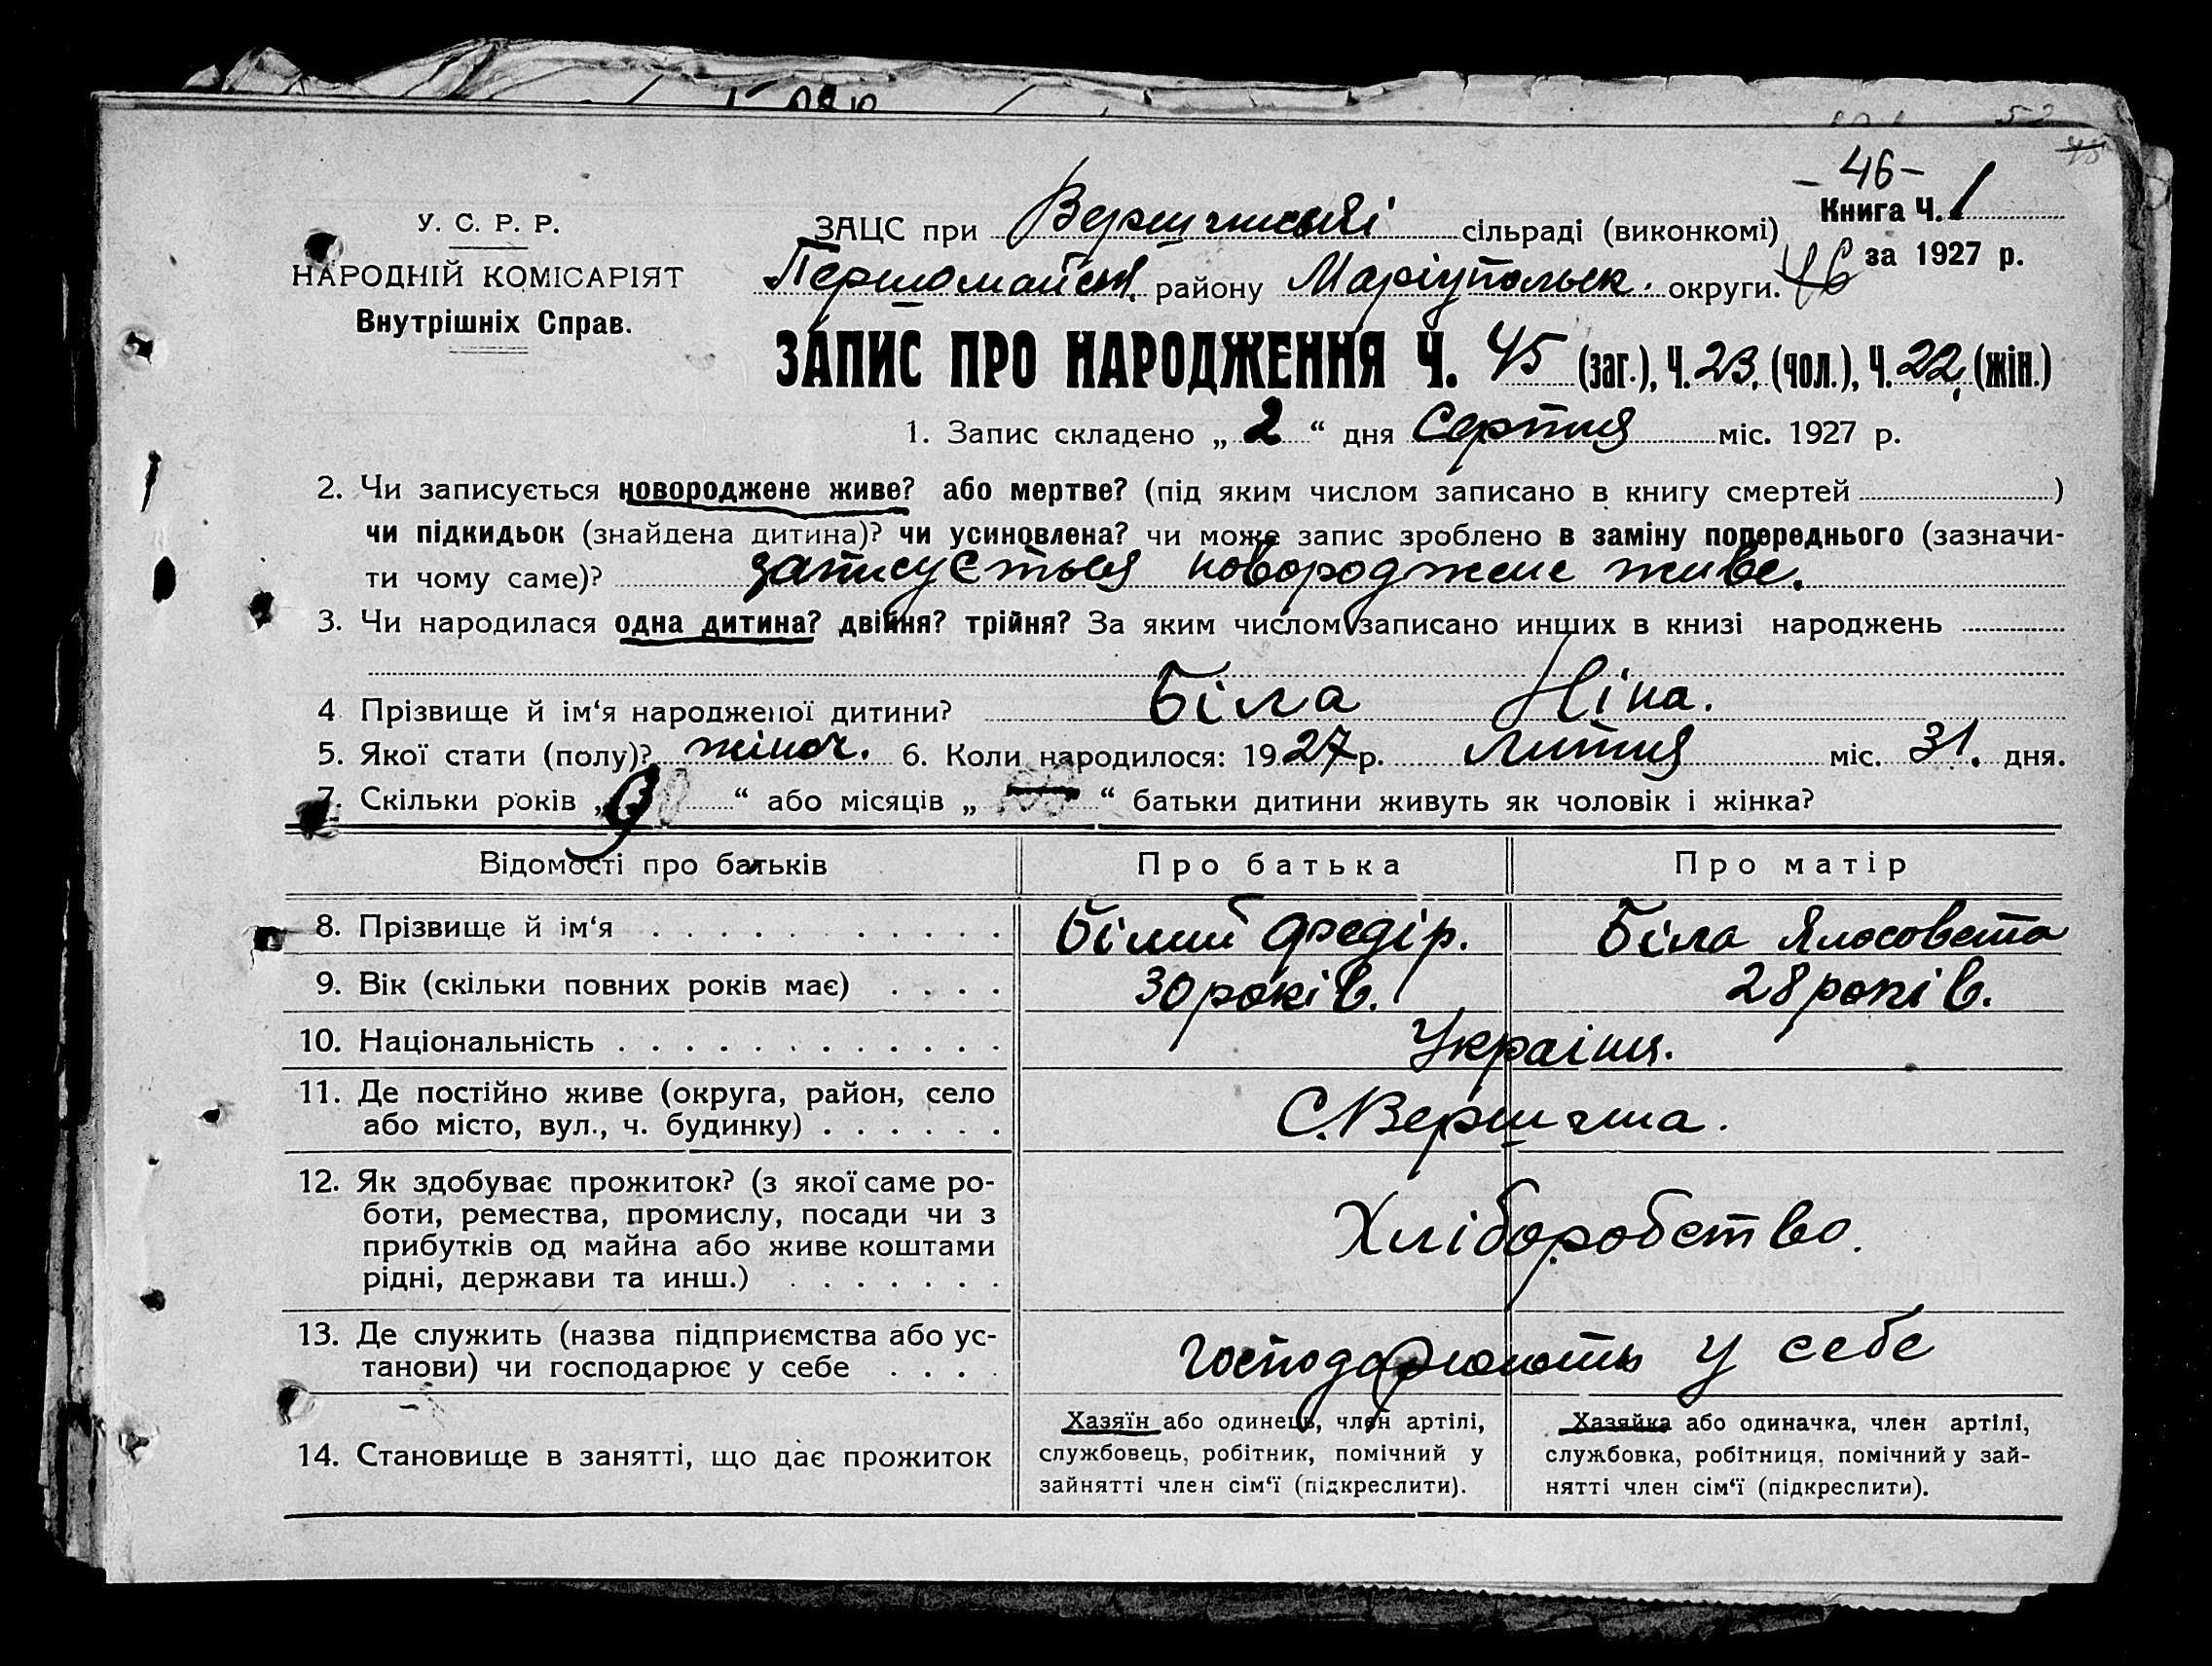 - 46 -
У. С. Р. Р.
НАРОДНІЙ КОМІСАРІЯТ
Внутрішніх Справ.
ЗАЦС при Вершинські сільраді (виконкомі)
Книга Ч. 1
за 1927 р.
Першомайськ. району Маріупольск. округи. 46
ЗАПИС ПРО НАРОДЖЕННЯ Ч. 45 (заг.), Ч. 23. (чол.), Ч. 22. (жін.)
1. Запис складено „ 2 “ дня Серпня міс. 1927 р.
2. Чи записується новороджене живе? або мертве? (під яким числом записано в книгу смертей )
чи підкидьок (знайдена дитина)? чи усиновлена? чи може запис зроблено в заміну попереднього (зазначи-
ти чому саме)? записується новороджене живе.
3. Чи народилася одна дитина? двійня? трійня? За яким числом записано инших в книзі народжень
4 Прізвище й ім‘я народженої дитини? Біла Ніна.
5. Якої стати (полу)? жіноч. 6. Коли народилося: 1927 р. Липня міс. 31. дня.
7. Скільки років „ 9 “ або місяців „ “ батьки дитини живуть як чоловік і жінка?
Відомості про батьків Про батька Про матір
8. Прізвище й ім‘я Білий Федір. Біла Ялосовета
9. Вік (скільки повних років має) 30 років. 28 років.
10. Національність Україця.
11. Де постійно живе (округа, район, село
або місто, вул., ч. будинку) С. Вершина.
12. Як здобуває прожиток? (з якої саме ро-
боти, ремества, промислу, посади чи з
прибутків од майна або живе коштами
рідні, держави та инш.) Хліборобство.
13. Де служить (назва підприємства або ус-
танови) чи господарює у себе Господарюють у себе
14. Становище в занятті, що дає прожиток
Хазяїн або одинець, член артілі,
службовець, робітник, помічний у
зайнятті член сім‘ї (підкреслити).
Хазяйка або одиначка, член артілі,
службовка, робітниця, помічний у зай-
нятті член сім‘ї (підкреслити).